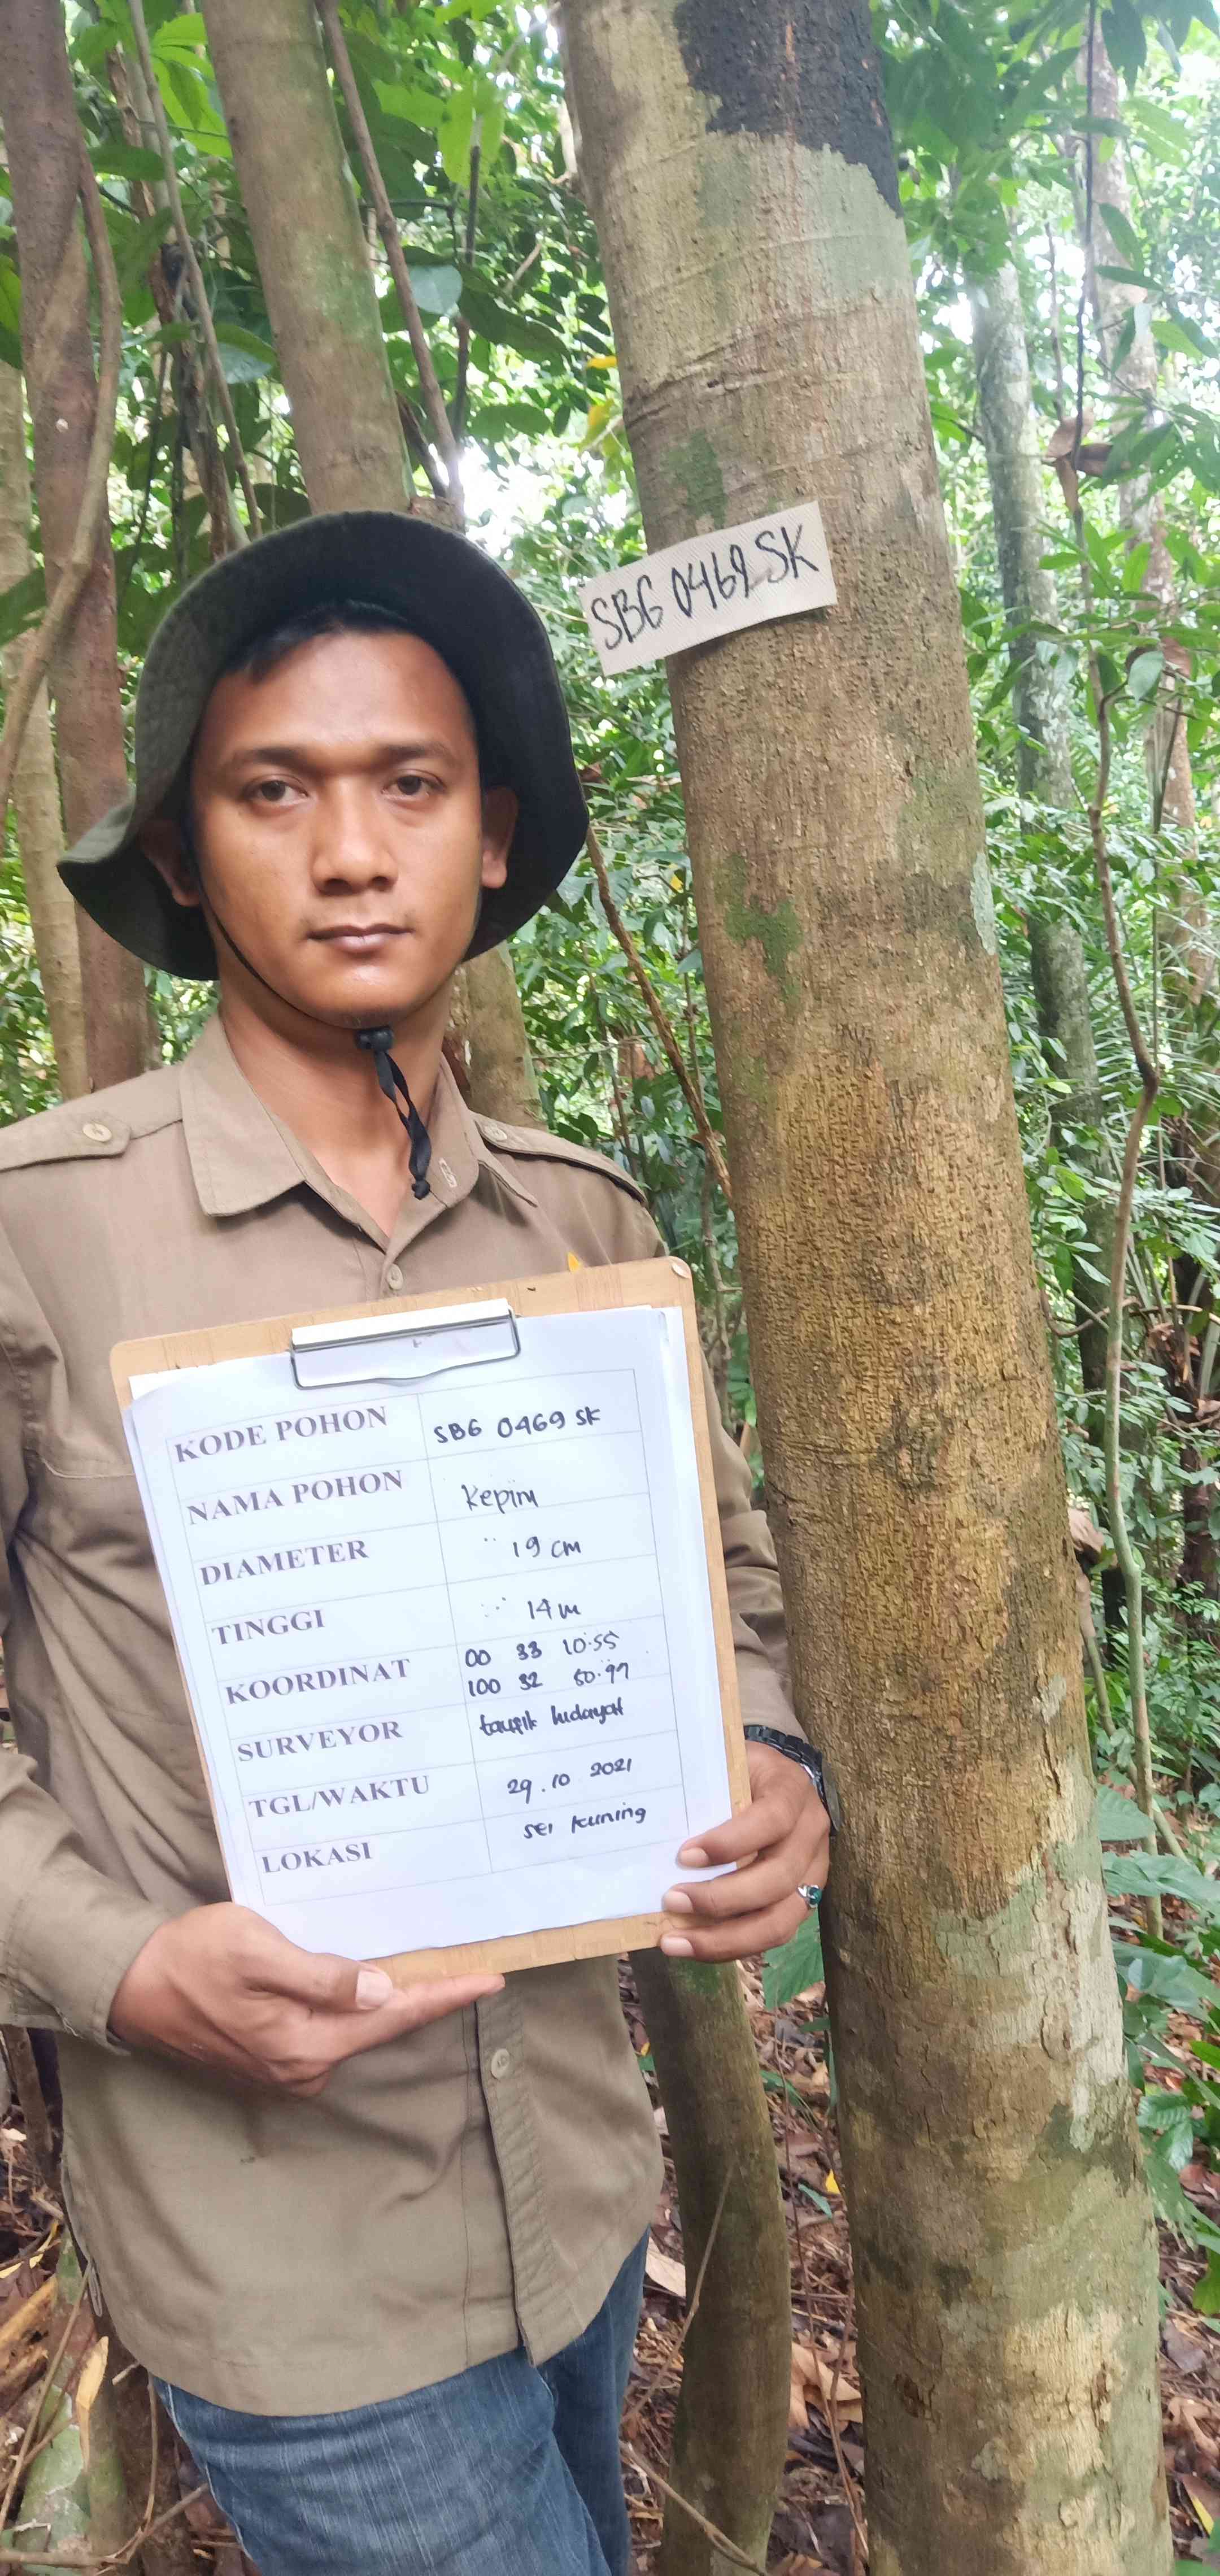 SBG 0469 SK
KODE POHON SBG 0469 SK
NAMA POHON Kepini
DIAMETER 19 cm
TINGGI 14 m
KOORDINAT 00 33 10.55
100 32 50.97
SURVEYOR taufik hidayat
TGL/WAKTU 29.10 2021
LOKASI sei kuning